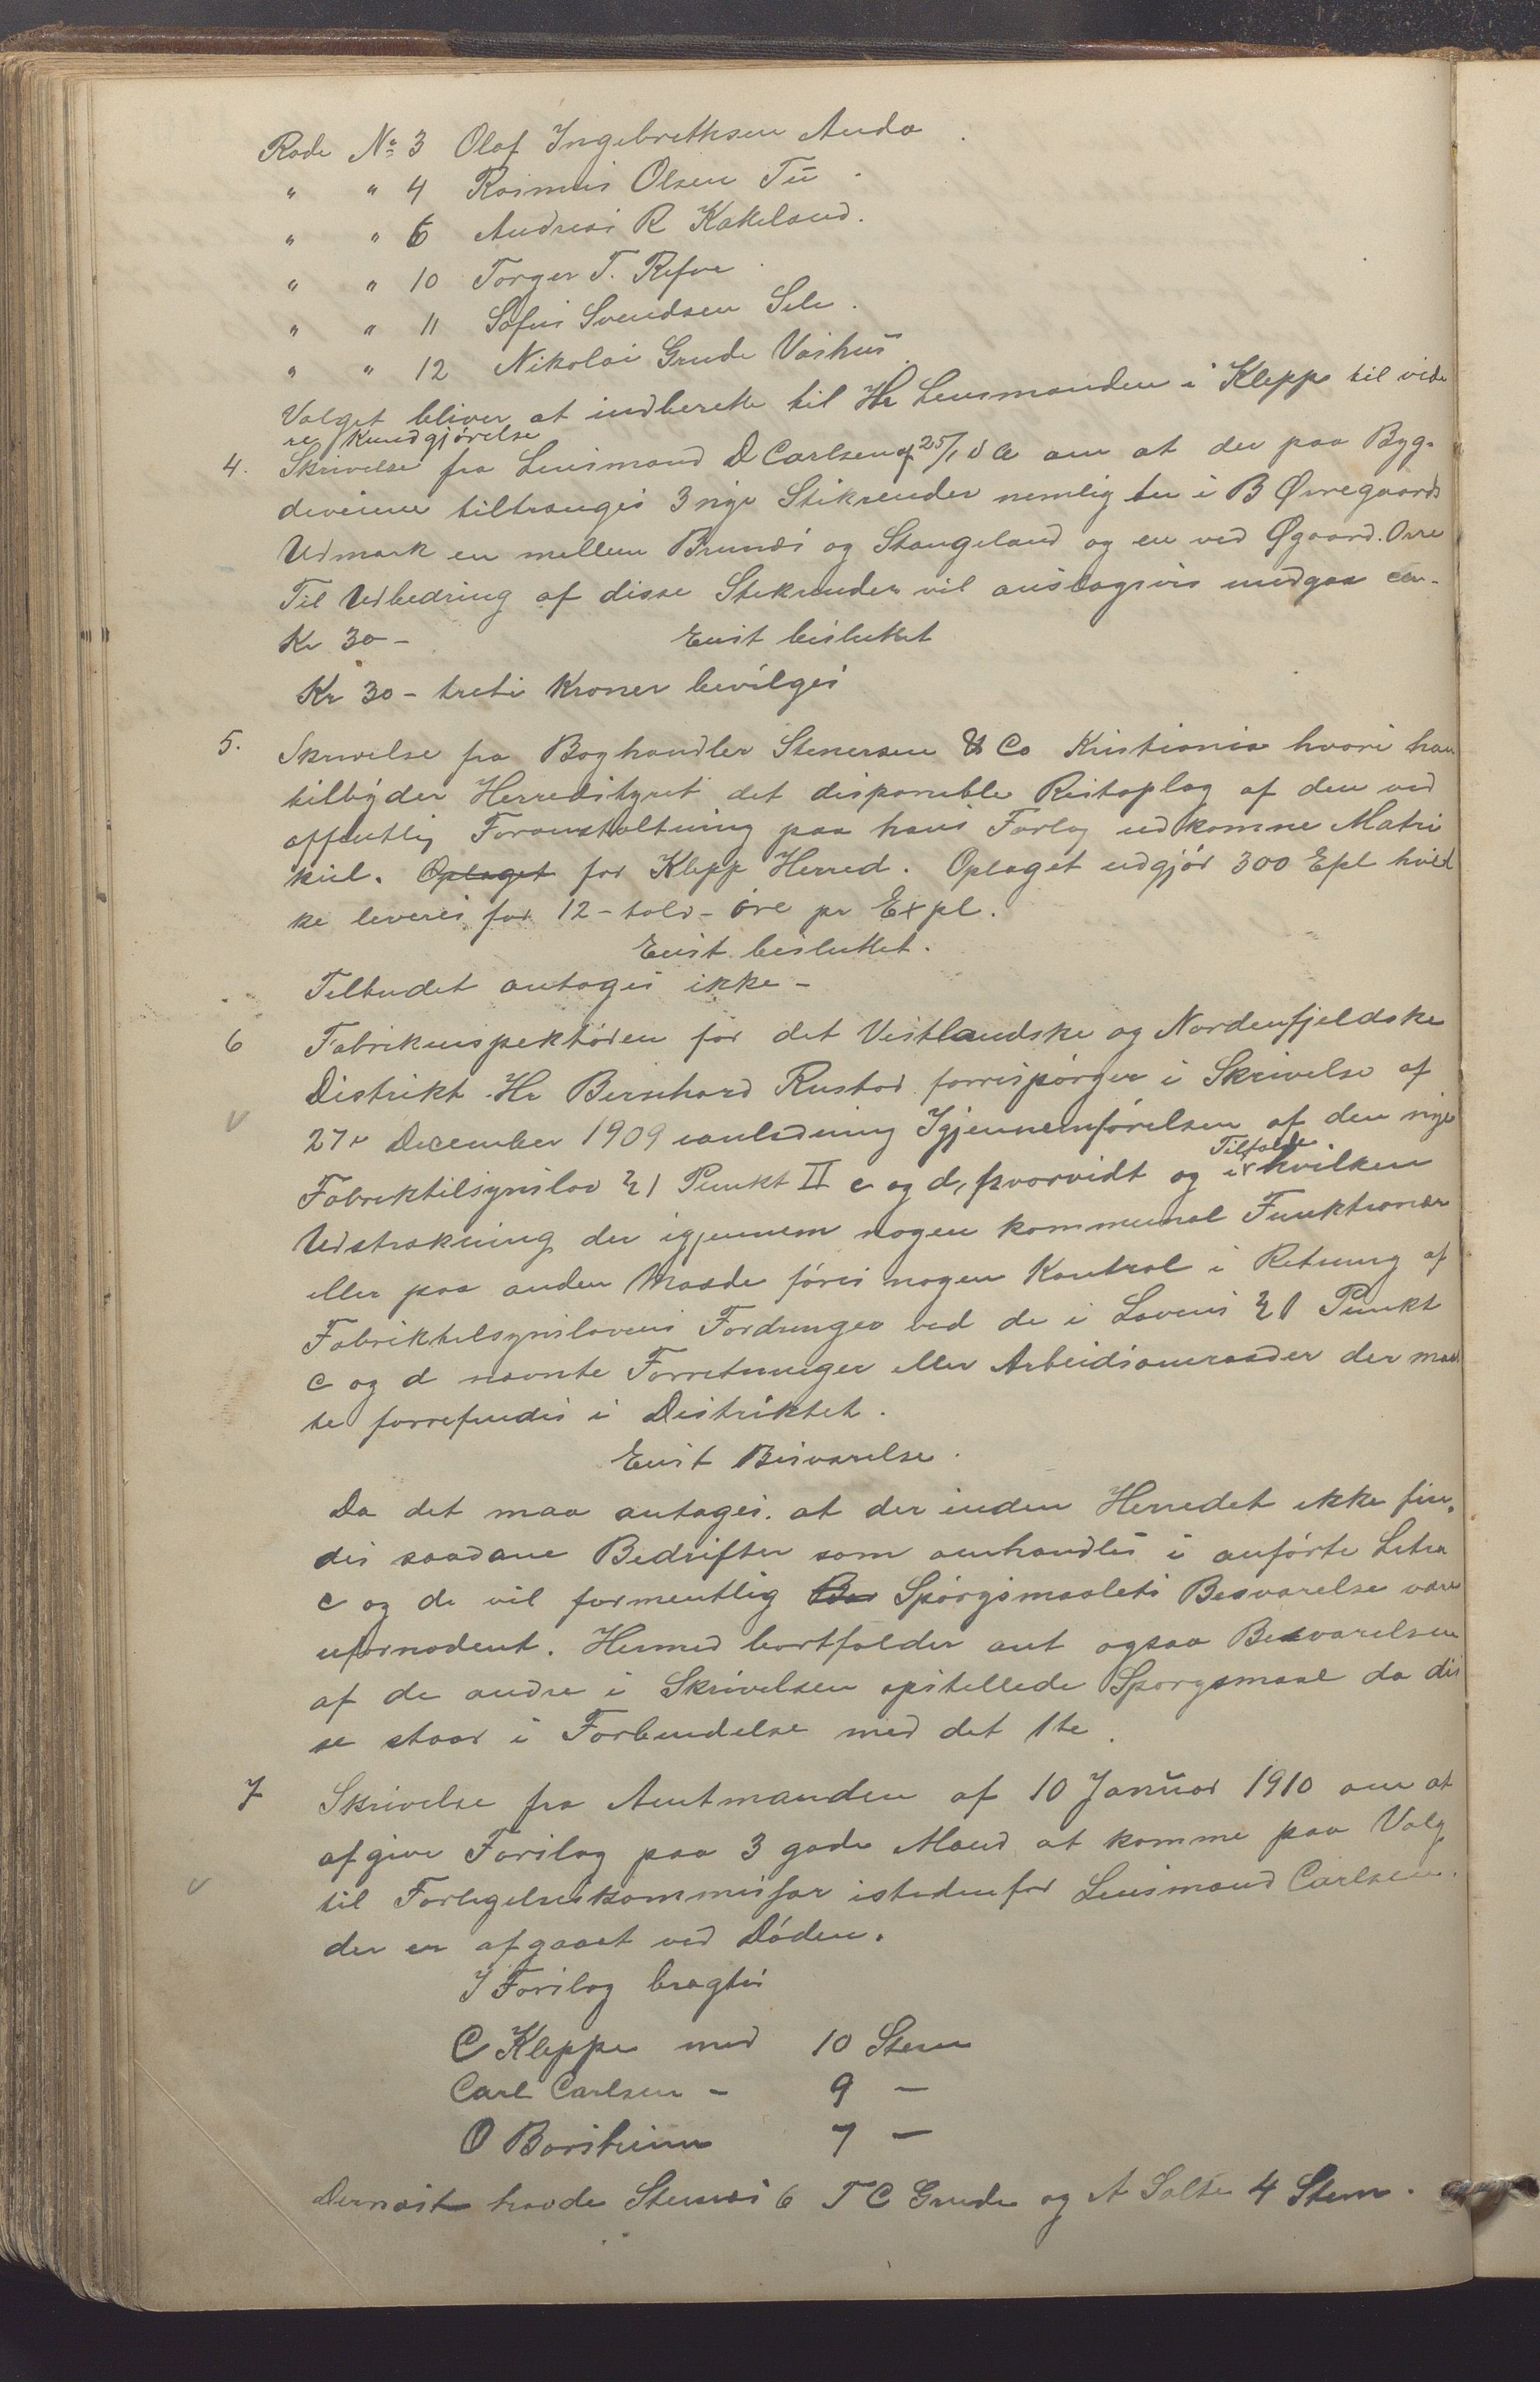 Rode No 3 Olaf Ingebrethsen Anda
" " 4 Rasmus Olsen Tu
" " 6 Andreas R Kakeland.
" " 10 Torger T. Refve
" " 11 Sofus Svendsen Sele.
" " 12 Nikolai Grude Vashus
Valget bliver at indberette til Hr Lensmanden i Klepp til vide
re Kundgjørelse
4. Skrivelse fra Lensmand D Carlsen af 25/1 d a om at der paa Byg-
deveiene tiltrænges 3 nye Stikrender nemlig en i B Orregaards
Udmark en mellem Brunæs og Stangeland og en ved Øgaard. Orre
Til Udbedring af disse Stikrender vil anslagsvis medgaa ca.
Kr 30 - Enst besluttet
Kr 30 - treti Kroner bevilges
5. Skrivelse fra Boghandler Stenersen & Co Kristiania hvori han
tilbyder Herredstyret det disponible Restoplag af den ved
offentlig Foranstaltning paa hans Forlag udkomne Matri
kul. Oplaget for Klepp Herred. Oplaget udgjør 300 Epl hvil
ke leveres for 12 - tolv - øre pr Expl.
Enst. besluttet.
Tilbudet antages ikke -
6 Fabrikinspektøren for det Vestlandske og Nordenfjeldske
Distrikt Hr Bernhard Rustad forrespørger i Skrivelse af
27e December 1909 ianledning Igjennemførelsen af den nye
Fabriktilsynslov § 1 Punkt II c og d, hvorvidt og i Tilfælde hvilken
Udstrækning der igjennem nogen kommunal Funktionær
eller paa anden Maade føres nogen Kontrol i Retning af
Fabriktilsynslovens Fordringer ved de i Lovens § 1 Punkt
c og d nævnte Forretninger eller Arbeidsomraader der maat
te forrefindes i Distriktet.
Enst Besvarelse.
Da det maa antages at der inden Herredet ikke fin-
des saadane Bedrifter som omhandles i anførte Litra
c og d vil formentlig Bes Spørgsmaalets Besvarelse være
ufornødent. Hermed bortfalder ant ogsaa Besvarelsen
af de andre i Skrivelsen opstellede Spørgsmaal da dis
se staar i Forbindelse med det 1te.
7 Skrivelse fra Amtmanden af 10 Januar 1910 om at
afgive Forslag paa 3 gode Mænd at komme paa Valg
til Forligelseskommissær istedenfor Lensmand Carlsen
der er afgaaet ved Døden.
I Forslag bragtes
C Kleppe med 10 Stem
Carl Carlsen - 9 -
O Borsheim 7 -
Dernæst havde Stemmes 6 T C Grude og A Salte 4 Stem.